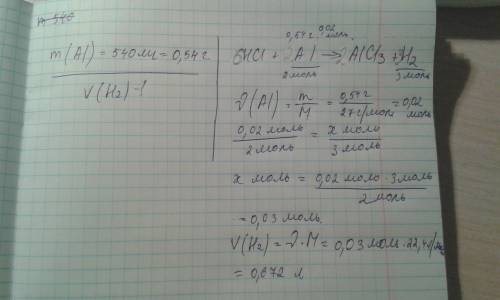 m(Al) = 540мг = 0,54г
V(H₂)-?
0,54г 0,02 моль
6HCl + 2Al → 2AlCl₃ + 3H₂
2моль 3моль
ν(Al) = m/M = 0,54г/27г/моль = 0,02 моль
0,02 моль/2моль = x моль/3моль
x моль = 0,02 моль · 3моль/2моль
= 0,03 моль.
V(H₂) = ν · M = 0,03моль · 22,4л/моль
= 0,672 л